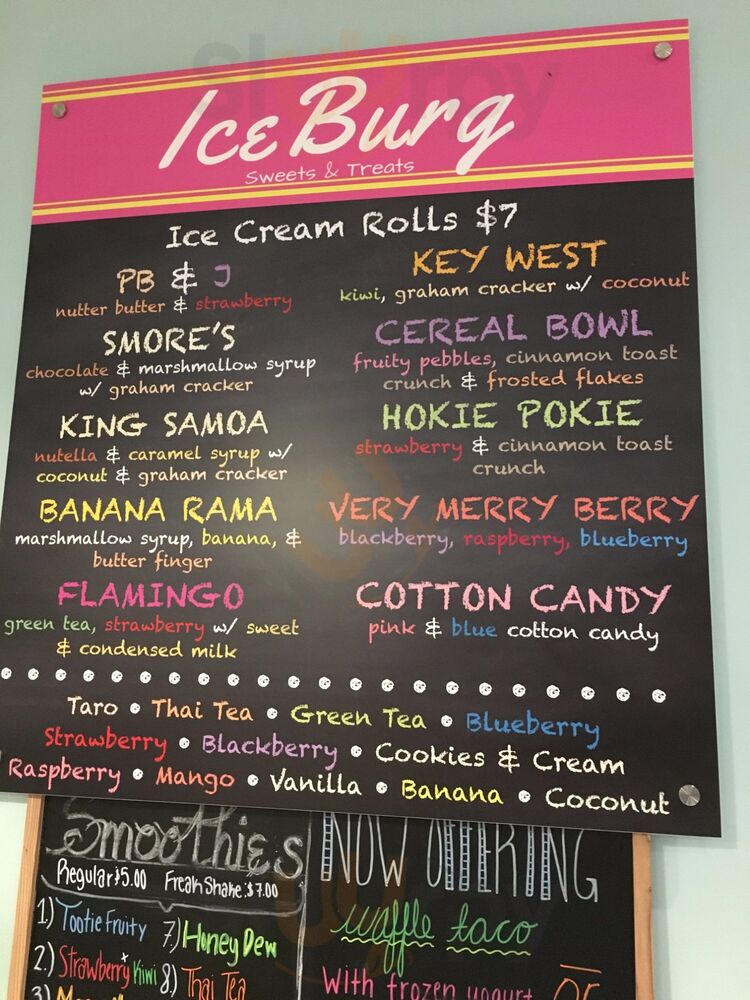 Ice Burg
Sweets & Treats
Ice Cream Rolls $7
PB & J
nutter butter & strawberry
SMORE'S
chocolate & marshmallow syrup
w/ graham cracker
KING SAMOA
nutella & caramel syrup w/
coconut & graham cracker
BANANA RAMA
marshmallow syrup, banana, &
butter finger
FLAMINGO
green tea, strawberry w/ sweet
& condensed milk
KEY WEST
kiwi, graham cracker w/ coconut
CEREAL BOWL
fruity pebbles, cinnamon toast
crunch & frosted flakes
HOKIE POKIE
strawberry & cinnamon toast
crunch
VERY MERRY BERRY
blackberry, raspberry, blueberry
COTTON CANDY
pink & blue cotton candy
Taro • Thai Tea • Green Tea • Blueberry
Strawberry • Blackberry • Cookies & Cream
Raspberry • Mango • Vanilla • Banana • Coconut
Smoothies
Regular $5.00 Freak Shake: $7.00
1.) Tootie Fruity
2.) Strawberry Kiwi
3)
7.) Honey Dew
8.) Thai Tea
NOW OFFERING
waffle taco
With frozen yogurt or